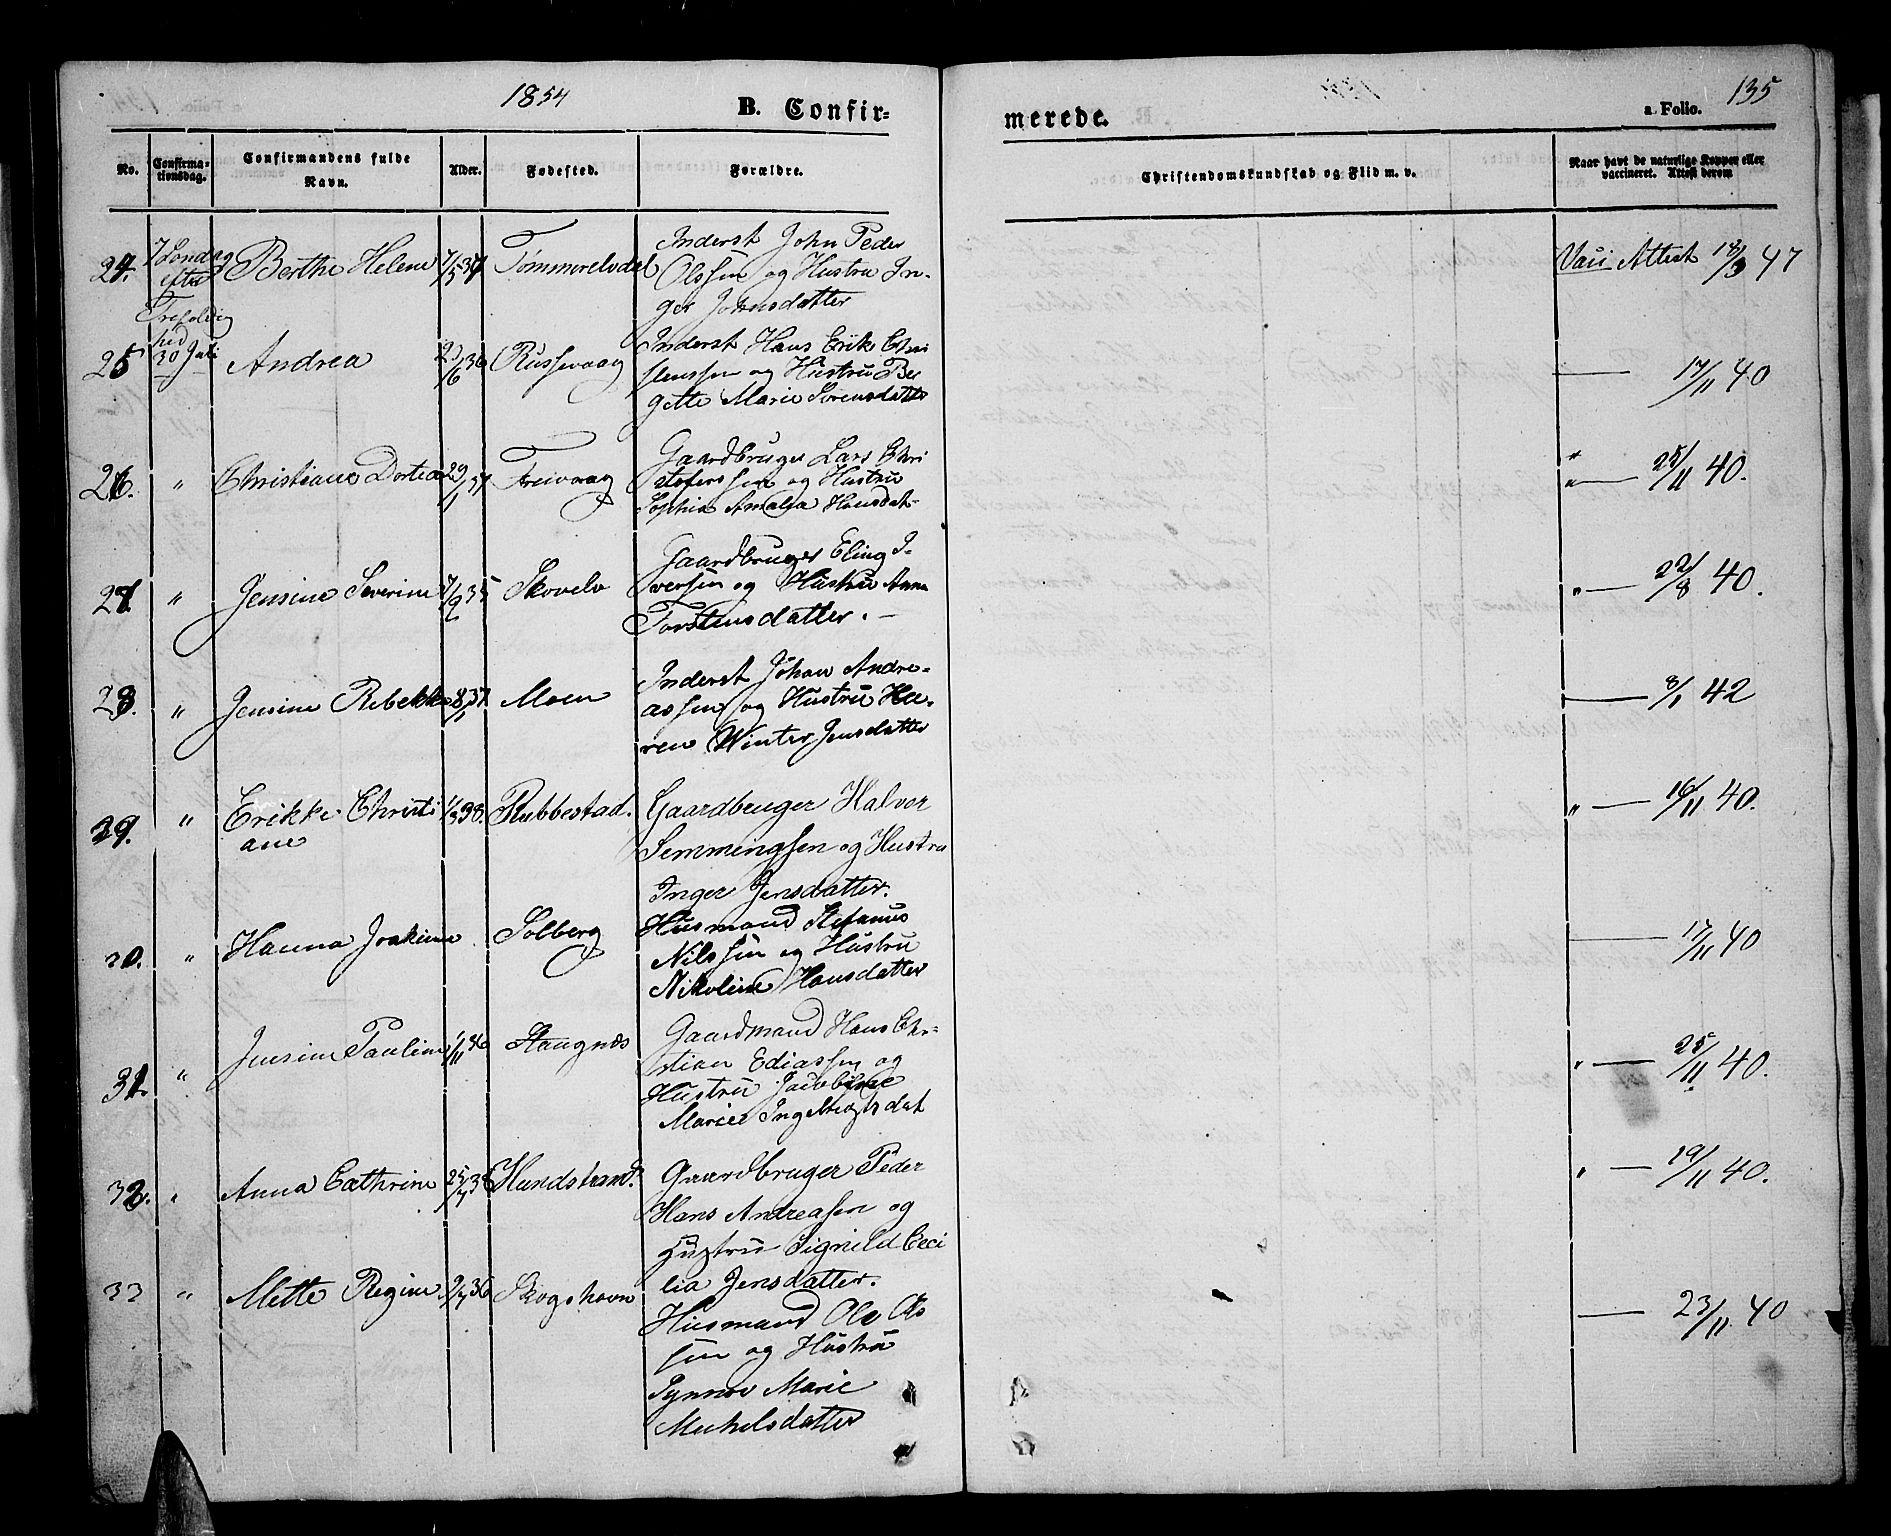 1854
B. Confir-
merede.
a. Folio.
135
No.
Confirma-
tionsdag.
Confirmandens fulde
Navn.
Alder.
Fødested.
Forældre.
Christendomskundskab og Flid m. v.
Naar havt de naturlige Kopper eller
vaccineret. Attest derom
24. 7 Søndag Berthe Helene 7/5 37 Tømmerelvdel Inderst John Peder
efter Olssen og Hustru In-
Trefoldig ger Johnsdatter
Vaci Attest 18/9 47
hed
25 30 Juli Andrea 23/6 36 Russevaag Inderst Hans Erik Chri
stenssen og Hustru Ber
gette Marie Sørensdatter
17/11 40
26. " Christiane Dortea 29/1 37 Treivaag Gaardbruger Lars Chri
stofersen og Hustru
Sophia Amalia Hansdat-
" 25/11 40.
27. " Jensine Severine 7/9 35 Skovelv Gaardbruger Eling I-
versen og Hustru Anna
Torstensdatter. -
" 22/8 40.
28. " Jensine Rebekka 8/1 37 Moen Inderst Johan Andre-
assen og Hustru Ka-
ren Winter Jensdatter
8/1 42
29. " Erikke Christi 1/3 38. Rubbestad. Gaardbruger Halvor
ane Semmingsen og Hustru
Inger Jensdatter.
" 16/11 40.
30. " Hanna Joakime Solberg Husmand Stefanus
Nilssen og Hustru
Nikoline Hansdatter
17/11 40
31. " Jensine Pauline 1/11 36 Staugnæs Gaardmand Hans Chr-
stian Ediassen og
Hustru Jacobine
Marie Ingebrigtsdat
" 25/11 40.
32. " Anna Cathrine 25/7 38 Kundstrand. Gaardbruger Peder
Hans Andreasen og
Hustru Signild Ceci
lia Jensdatter.
" 19/11 40.
33 " Mette Regine 2/7 36 Skogshavn
Husmand Ole Ols
sen og Hustru
Synnøv Marie
Michelsdatter
23/11 40